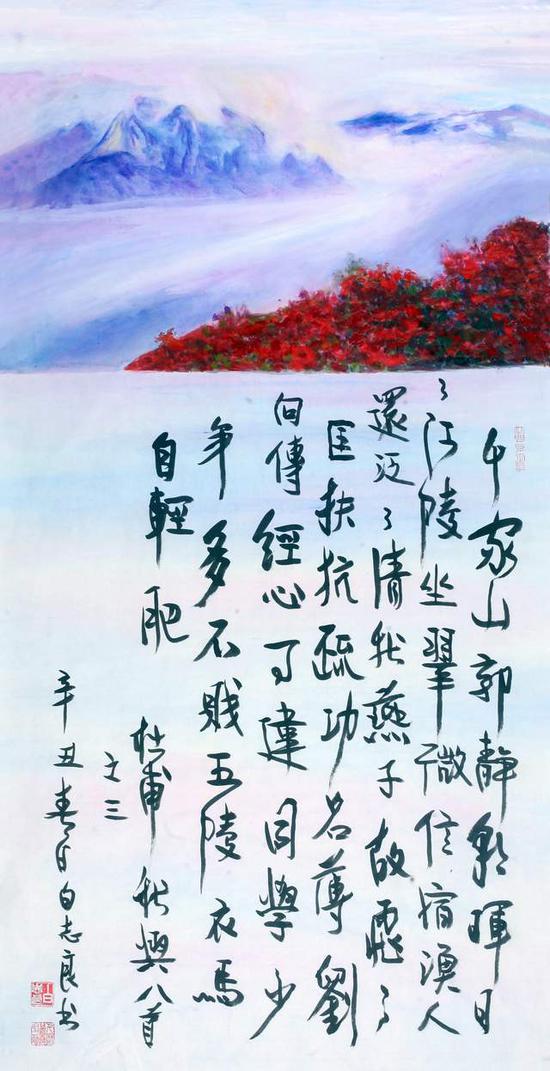 千家山郭靜朝暉日
々江陵坐翠微信宿漁人
還泛々清秋燕子故飛々
匡扶抗疏功名薄劉
向傳經心事違同學少
年多不賤五陵衣馬
自輕肥
杜甫秋興八首
之三
辛丑春日白志良书